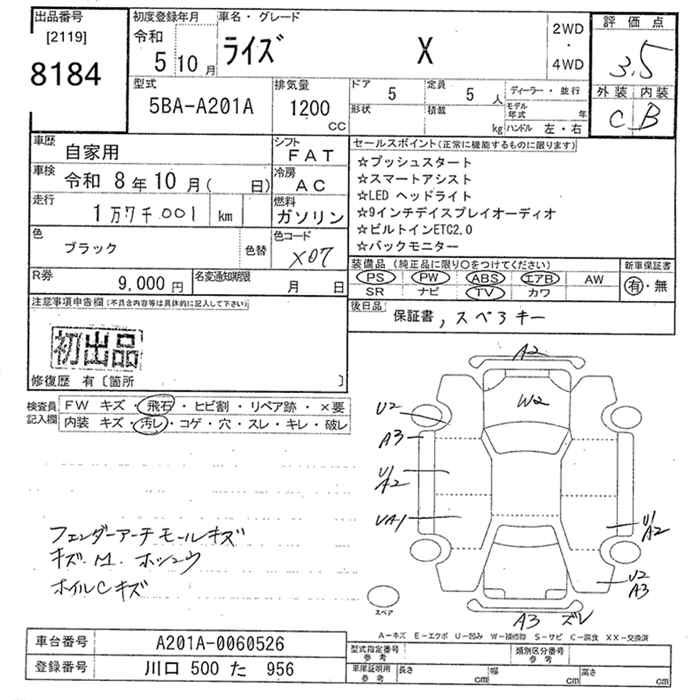 出品番号 初度登録年月 車名・グレード 評価点
[2119] 令和 2WD
8184 5 10月 ライズ X ・ 3.5
4WD
外装 内装
C B
型式 排気量 ドア 5 定員 5人 ディーラー・並行
5BA-A201A 1200 cc 形状 積載 kg モデル年式 年
ハンドル 左・右
車歴 自家用 シフト FAT
車検 令和 8年10月( 日) 冷房 AC
走行 1万7千001 km 燃料 ガソリン
色 ブラック 色替 色コード X07
R券 9,000円 名変通知期限 月 日
セールスポイント(正常に機能するものに限ります)
☆プッシュスタート
☆スマートアシスト
☆LED ヘッドライト
☆9インチディスプレイオーディオ
☆ビルトインETC2.0
☆バックモニター
装備品 (純正品に限り○をつけてください) 新車保証書
PS PW ABS エアB AW 有・無
SR ナビ TV カワ
後日品 保証書,スペ3キー
注意事項申告欄(不具合内容等は具体的に記入して下さい)
初出品
修復歴 有〔箇所 〕
検査員記入欄 FW キズ・飛石・ヒビ割・リペア跡・×要
内装 キズ・汚レ・コゲ・穴・スレ・キレ・破レ
フェンダーアーチモールキズ
キズ.M.ホシュウ
ホイルCキズ
A2
W2
U2
A3
U/A2
UA1
U1/A2
U2
A3
A3 ズレ
スペア
A-キズ E-エクボ U-凹み W-補修跡 S-サビ C-腐食 XX-交換済
車台番号 A201A-0060526
登録番号 川口 500 た 956
型式指定番号 参考 類別区分番号 参考
車庫証明用 参考 長さ cm 幅 cm 高さ cm